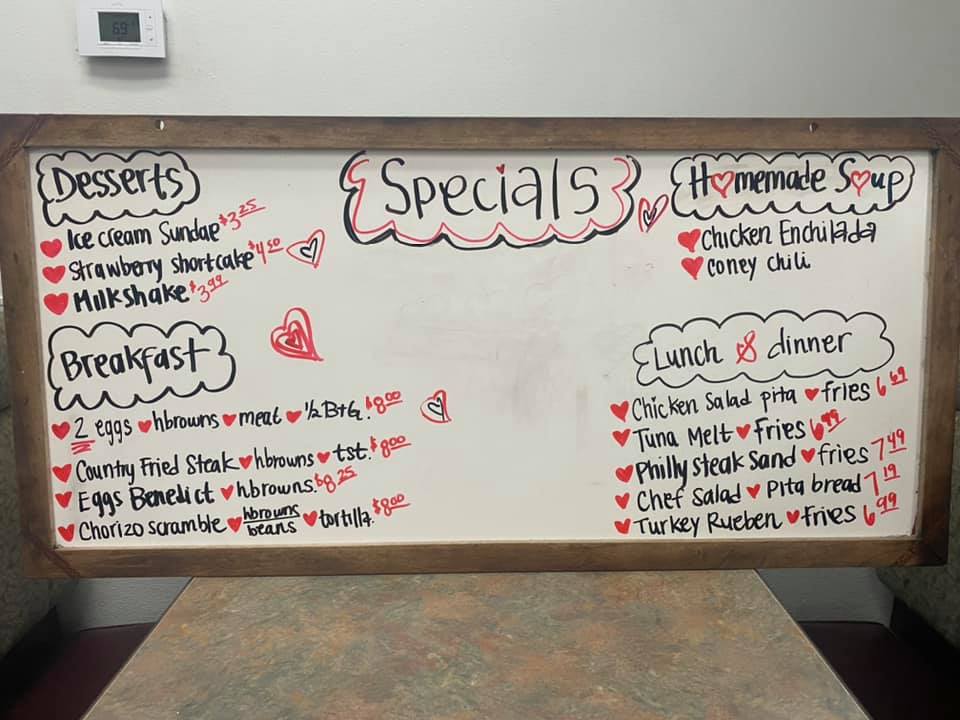 69
Specials
Desserts
Ice cream Sundae $3.25
Strawberry shortcake $4.50
Milkshake $3.99
Breakfast
2 eggs hbrowns meat 1/2 B+G. $8.00
Country Fried Steak hbrowns tst. $8.00
Eggs Benedict hbrowns. $8.25
Chorizo scramble hbrowns/beans tortilla. $8.00
Homemade Soup
Chicken Enchilada
coney chili
Lunch & dinner
Chicken Salad pita fries 6.69
Tuna Melt Fries 6.99
Philly steak Sand fries 7.49
Chef Salad Pita bread 7.19
Turkey Rueben fries 6.99